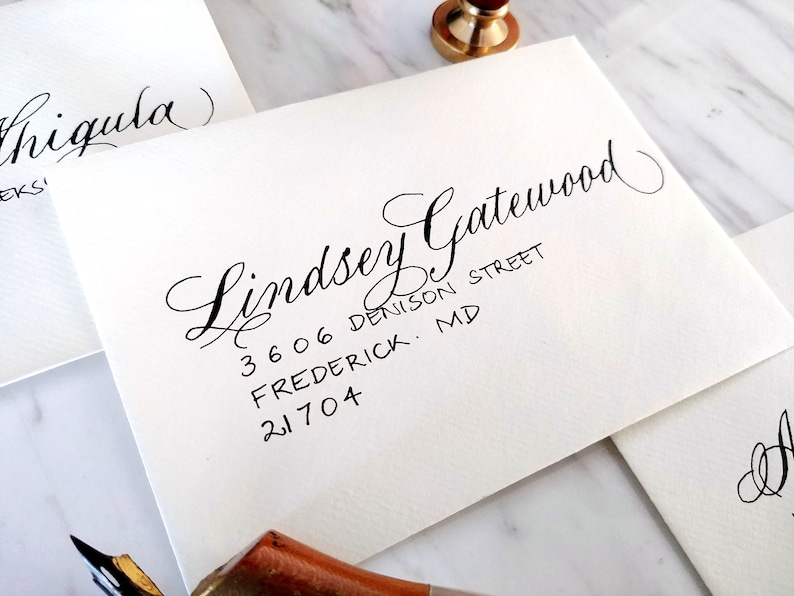 Lindsey Gatewood
3606 DENISON STREET
FREDERICK. MD
21704